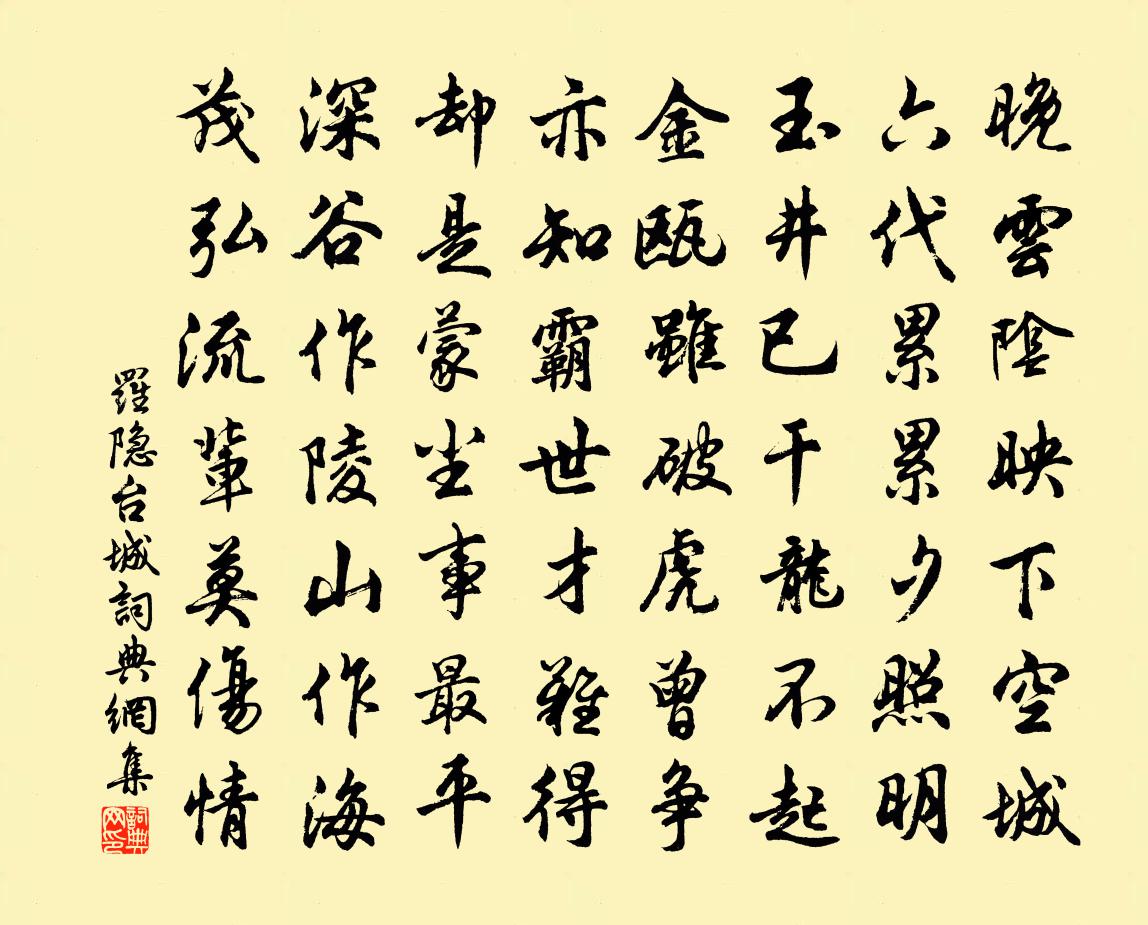 晚雲陰映下空城
六代累累夕照明
玉井已干龍不起
金甌雖破虎曾争
亦知霸世才難得
却是蒙尘事最平
深谷作陵山作海
茂弘流輩莫傷情
羅隐台城詞典網集
詞典网印